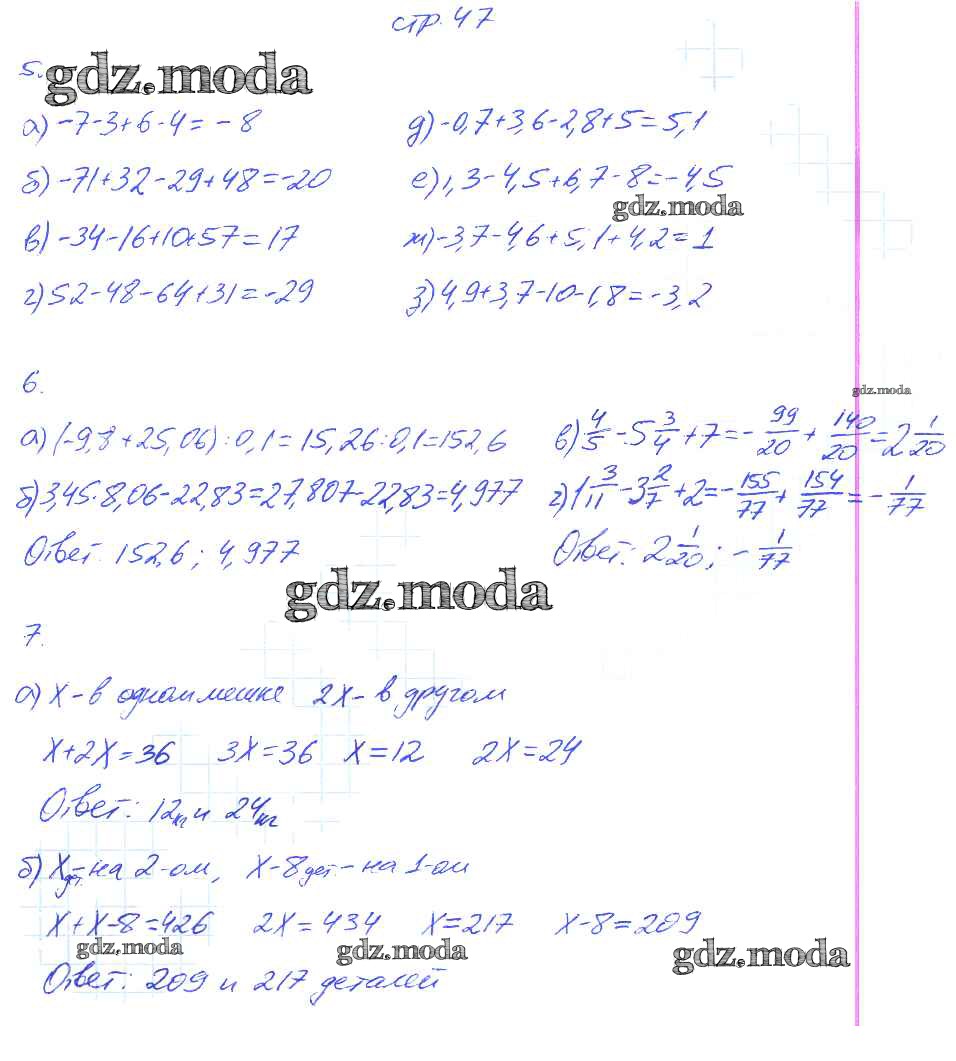 стр. 47
5.
gdz.moda
а) -7-3+6-4 = -8 д) -0,7+3,6-2,8+5 = 5,1
б) -71+32-29+48 = -20 е) 1,3-4,5+6,7-8 = -4,5
gdz.moda
в) -34-16+10+57 = 17 ж) -3,7-4,6+5,1+4,2 = 1
г) 52-48-64+31 = -29 з) 4,9+3,7-10-1,8 = -3,2
6.
gdz.moda
а) (-9,8+25,06):0,1 = 15,26:0,1 = 152,6 в) 4/5 - 5 3/4 + 7 = - 99/20 + 140/20 = 2 1/20
б) 3,45·8,06-22,83 = 27,807-22,83 = 4,977 г) 1 3/11 - 3 2/7 + 2 = - 155/77 + 154/77 = - 1/77
Ответ: 152,6; 4,977 Ответ: 2 1/20; - 1/77
gdz.moda
7.
а) х - в одном мешке 2х - в другом
х+2х=36 3х=36 х=12 2х=24
Ответ: 12кг и 24кг
б) х дет. - на 2-ом, х-8 дет. - на 1-ом
х+х-8=426 2х=434 х=217 х-8=209
gdz.moda gdz.moda gdz.moda
Ответ: 209 и 217 деталей